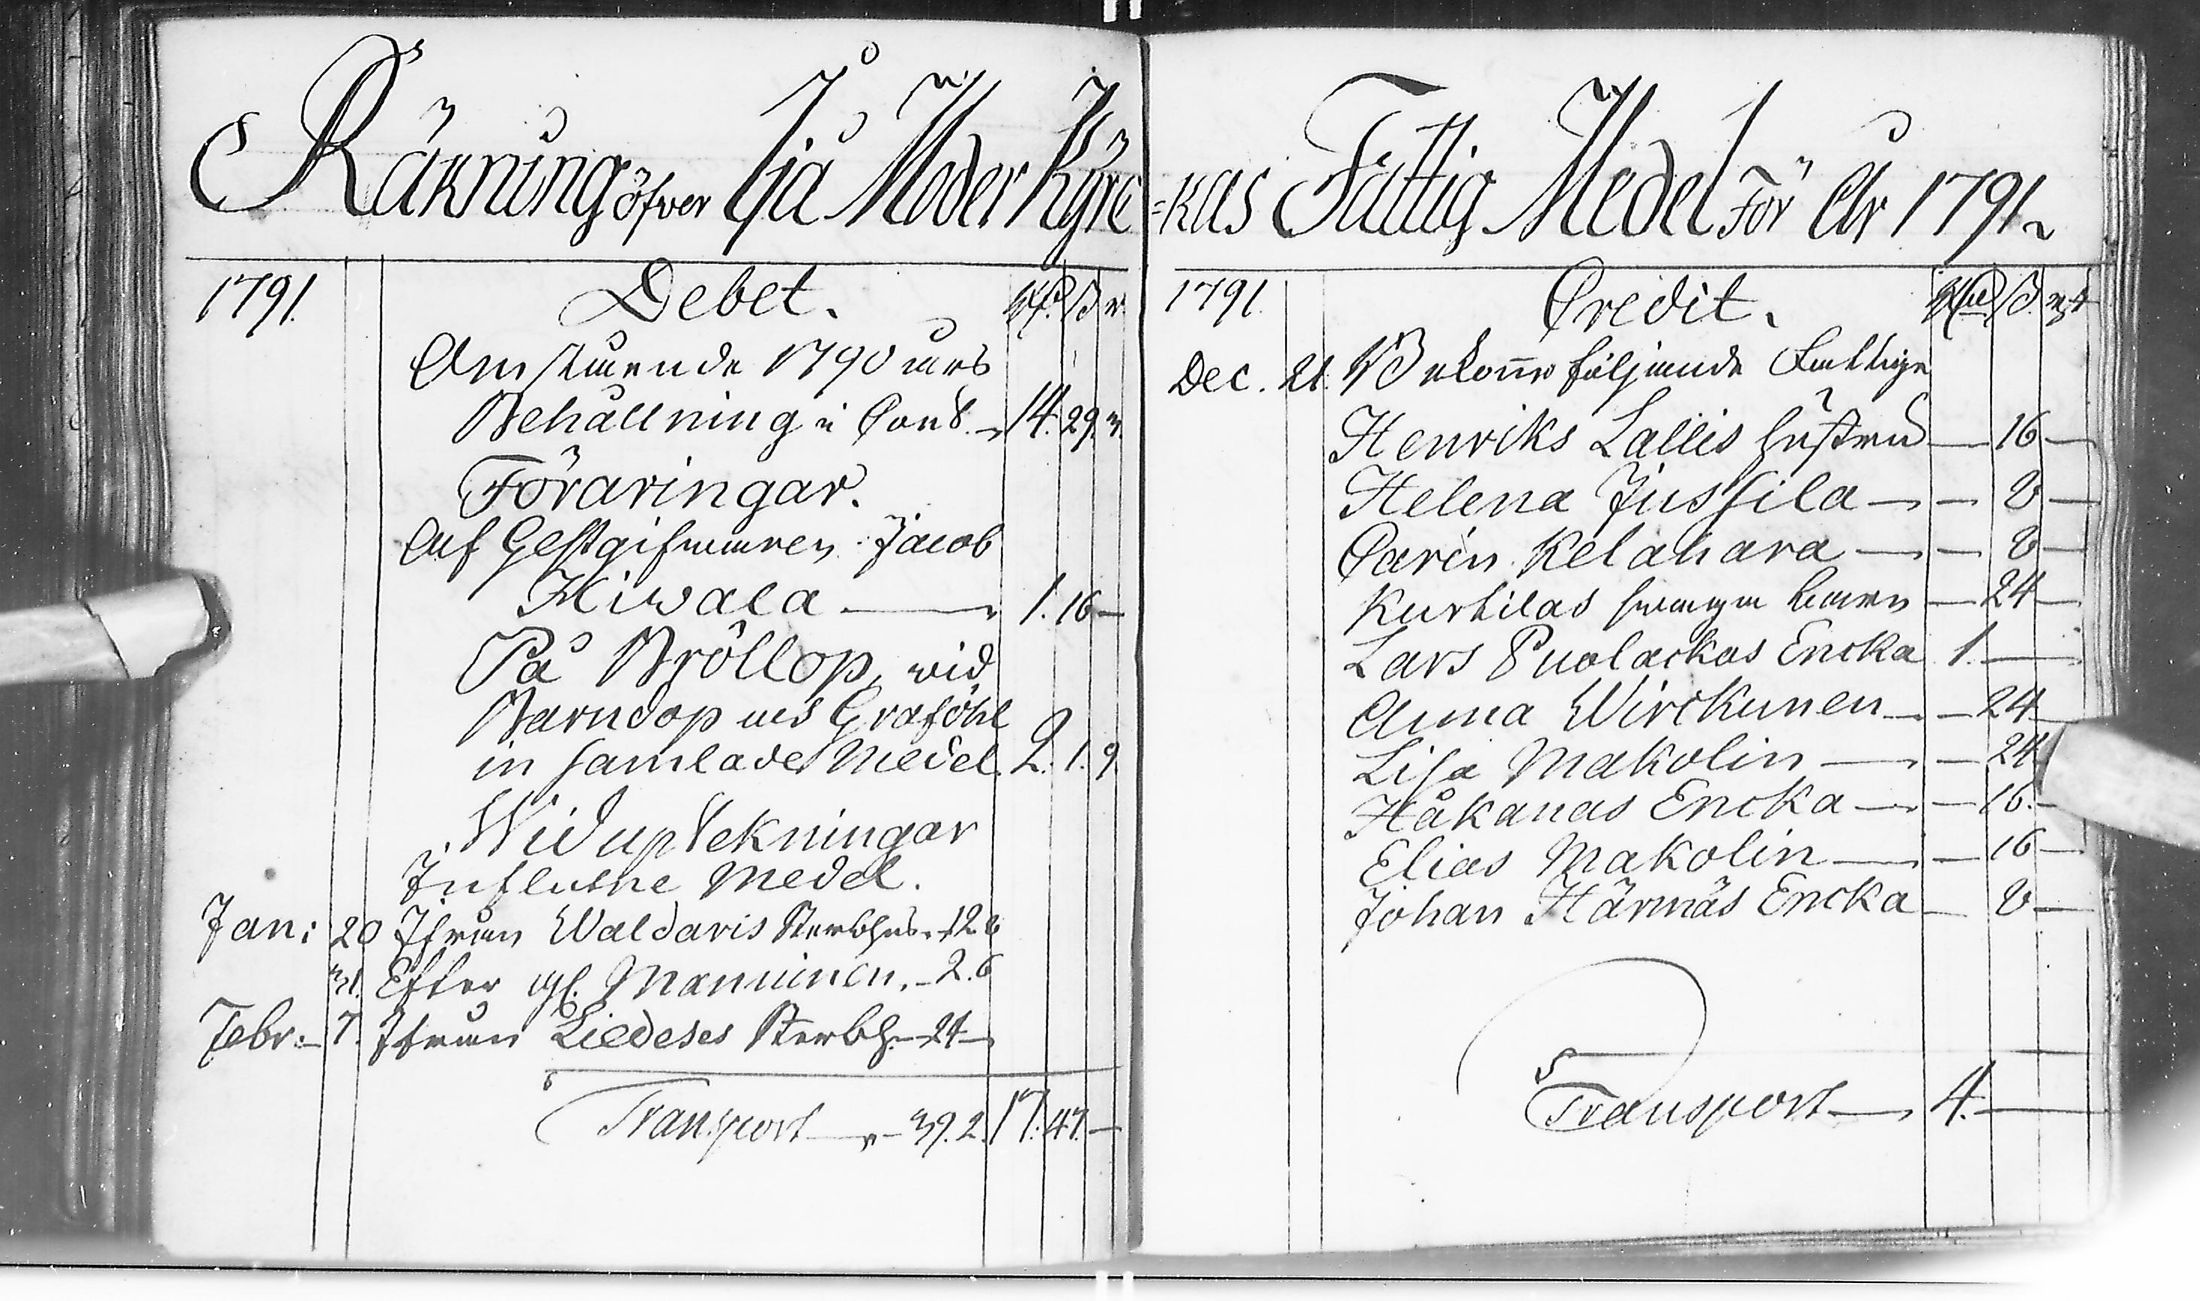 Räkning öfver Ijå Moder Kyrc
1791. Debet. Rd. ß r.
Anstående 1790 års
Behållning i Cont. 14. 29. 3.
Föraringar.
Af Gestgifvaren Jacob
Kiwala 1. 16 —
På Bröllop, wid
Barndop och Graföhl
in samlade Medel. 2. 1. 9.
Wid uptekningar
Influtne Medel.
Jan: 20 Ifrån Waldaris Sterbhus. 12. 8
31. Efter gl. Manninen. 2. 6
Febr: 7. Ifrån Liedeses Sterbh. 24
Transport 39. 2. 17. 47. —
=kas Fattig Medel För År 1791.
1791. Credit. Rd ß. r
Dec. 21. Bekomo följande Fattige
Henriks Lallis hustru — 16 —
Helena Jussila — 8 —
Carin Kelahara — 8 —
Kurtilas svaga barn — 24 —
Lars Puolackas Encka 1. —
Anna Wirckunen — 24
Lisa Makolin — 24
Håkanas Encka — 16. —
Elias Makolin — 16 —
Johan Härmäs Encka — 8 —
Transport 4. —